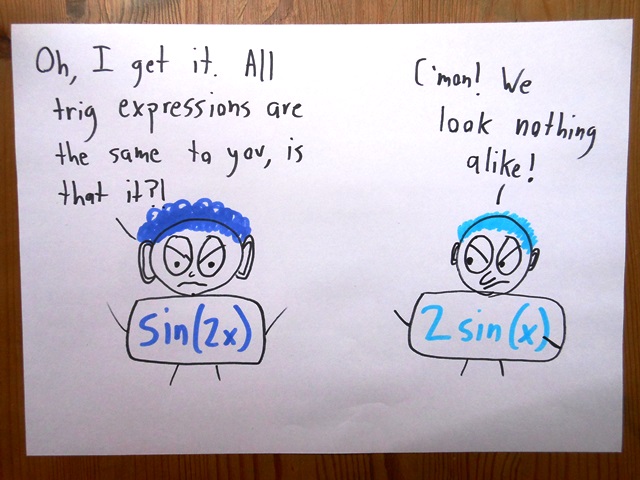 Oh, I get it. All
trig expressions are
the same to you, is
that it?!
C'mon! We
look nothing
alike!
sin(2x)
2 sin(x)